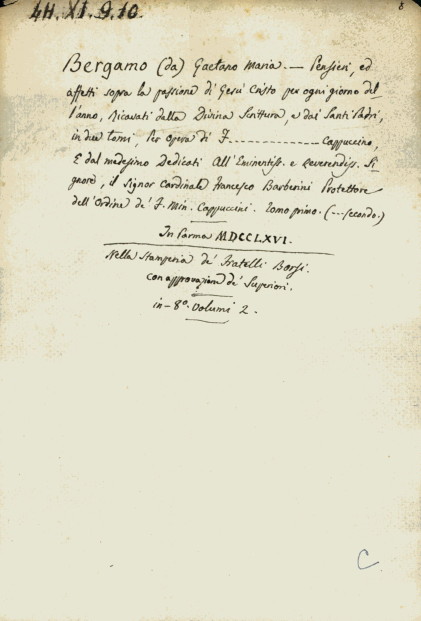 4H. XI. 9. 10.
8
Bergamo (da) Gaetano Maria. — Pensieri, ed
affetti sopra la passione di Gesù Cristo per ogni giorno del
l'anno, Ricavati dalla Divina Scrittura, e dai Santi Padri,
in due tomi, Per Opera di F.------------- Cappuccino,
E dal medesimo Dedicati All'Eminentiss. e Reverendiss. Si-
gnore, il Signor Cardinale Francesco Barberini Protettore
dell'Ordine de' F. Min. Cappuccini. Tomo primo. (---secondo.)
In Parma MDCCLXVI.
Nella Stamperia de' Fratelli Borsi.
con approvazione de' Superiori.
in-8º. Volumi 2.
C